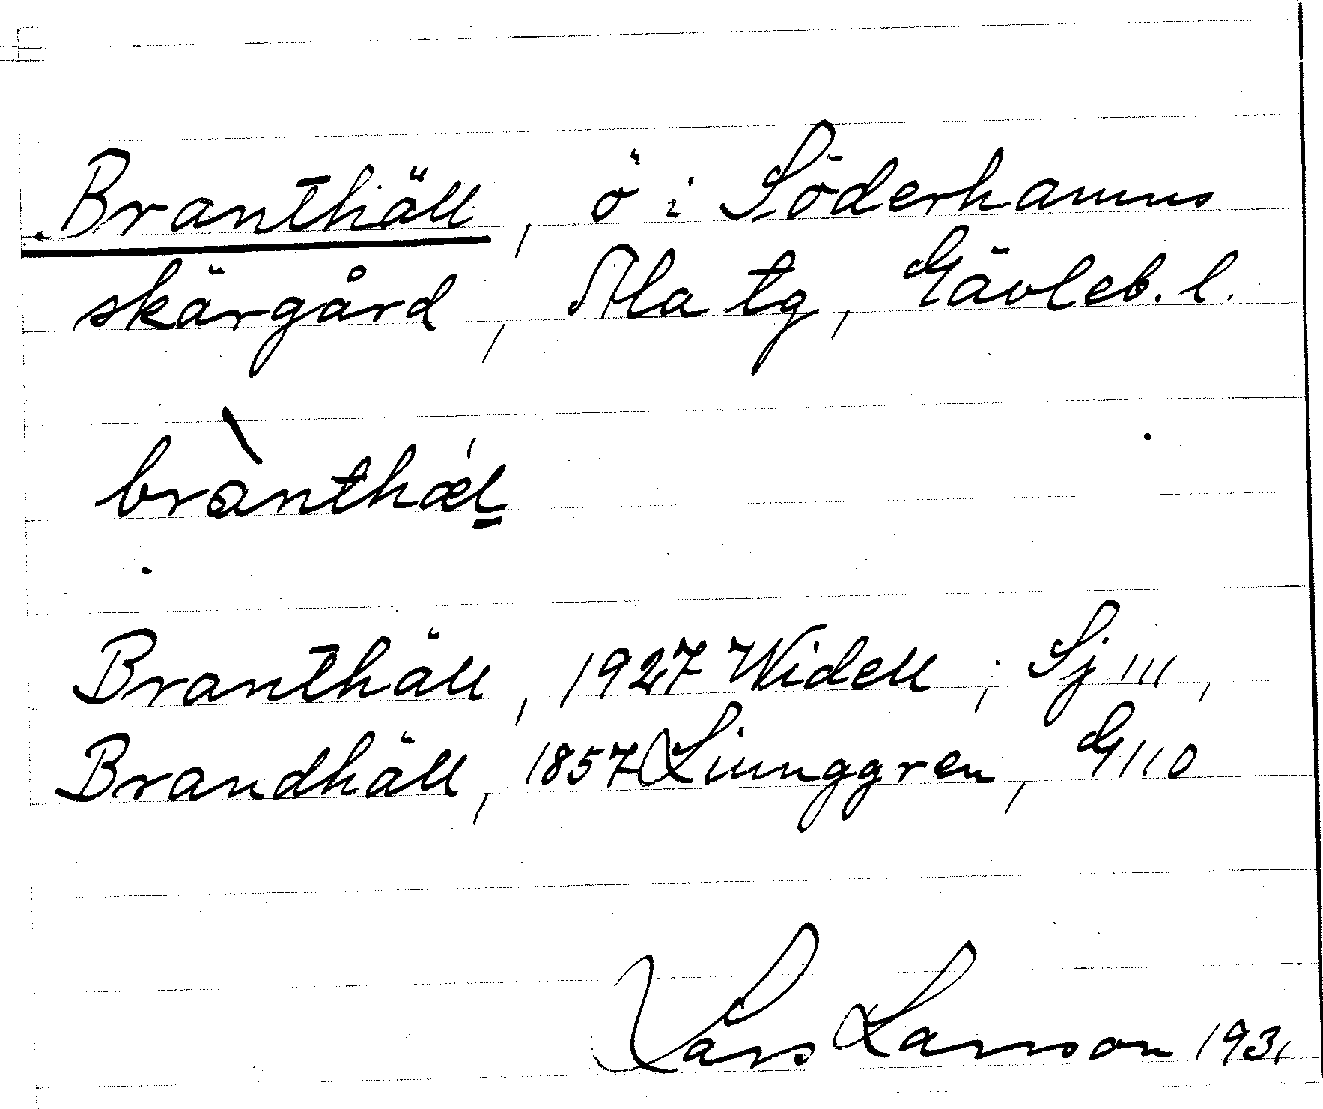 Branthäll, ö i Söderhamns
skärgård, Ala tg, Gävleb. l.
brànthǽl
Branthäll, 1927 Widell; Sj 111,
Brandhäll, 1857 Ljunggren, G 110
Lars Larsson 1931